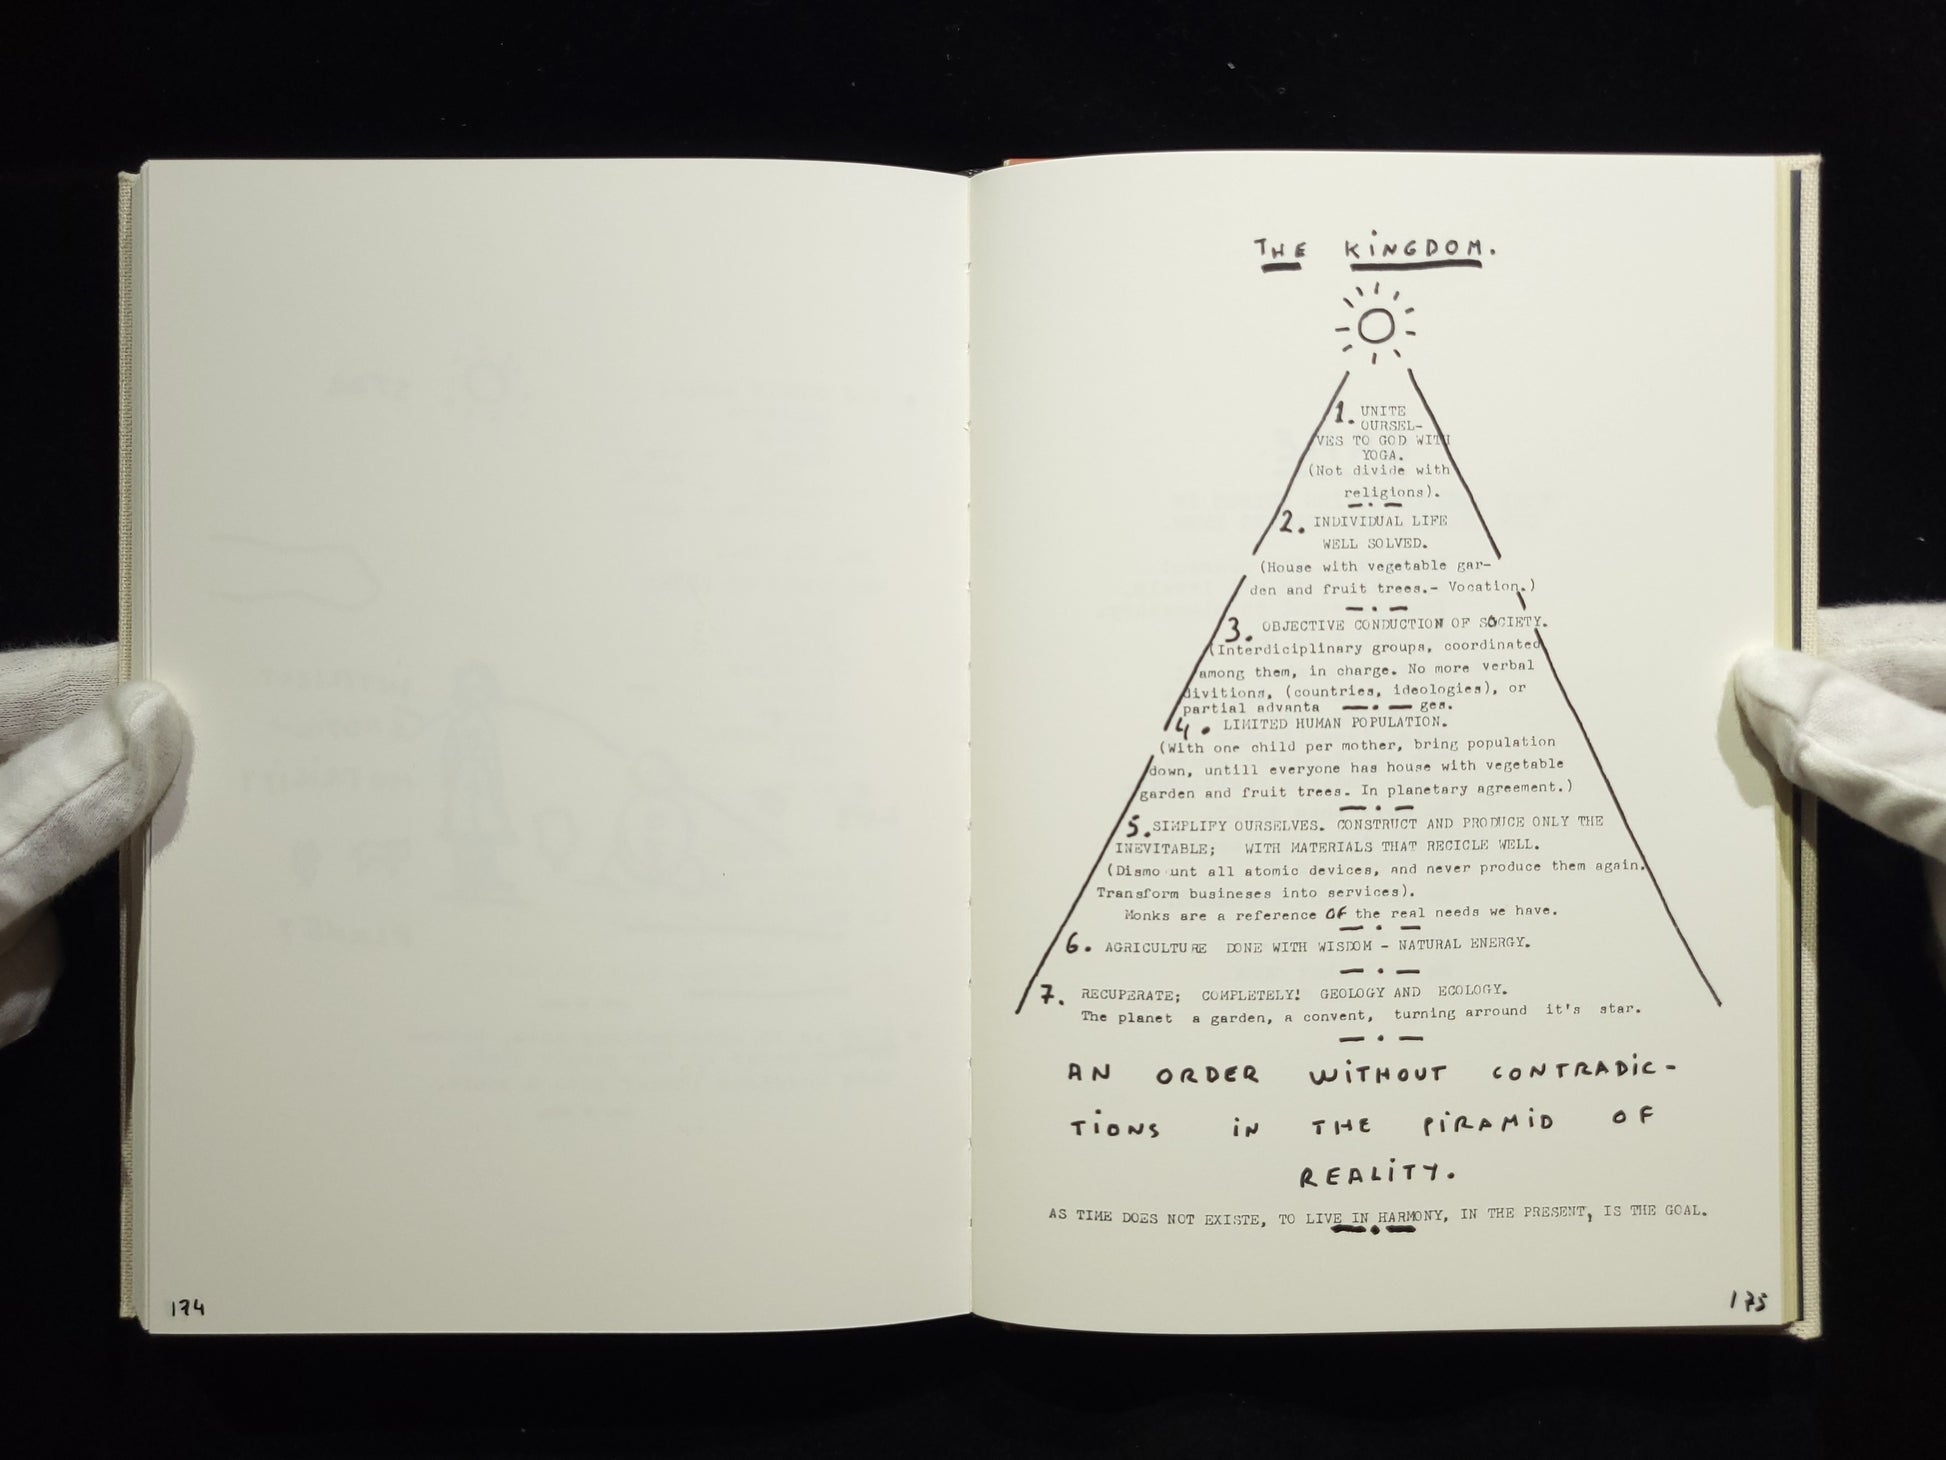 THE KiNGDOM.
1. UNITE
OURSEL-
VES TO GOD WITH
YOGA.
(Not divide with
religions).
2. INDIVIDUAL LIFE
WELL SOLVED.
(House with vegetable gar-
den and fruit trees.- Vocation.)
3. OBJECTIVE CONDUCTION OF SOCIETY.
(Interdiciplinary groups, coordinated
among them, in charge. No more verbal
divitions, (countries, ideologies), or
partial advanta ges.
4. LIMITED HUMAN POPULATION.
(With one child per mother, bring population
down, untill everyone has house with vegetable
garden and fruit trees. In planetary agreement.)
5. SIMPLIFY OURSELVES. CONSTRUCT AND PRODUCE ONLY THE
INEVITABLE; WITH MATERIALS THAT RECICLE WELL.
(Dismo unt all atomic devices, and never produce them again.
Transform busineses into services).
Monks are a reference OF the real needs we have.
6. AGRICULTURE DONE WITH WISDOM - NATURAL ENERGY.
7. RECUPERATE; COMPLETELY! GEOLOGY AND ECOLOGY.
The planet a garden, a convent, turning arround it's star.
AN ORDER WiTHOUT CONTRADiC-
TiONS iN THE PiRAMiD OF
REALiTY.
AS TIME DOES NOT EXISTE, TO LIVE IN HARMONY, IN THE PRESENT, IS THE GOAL.
174
175